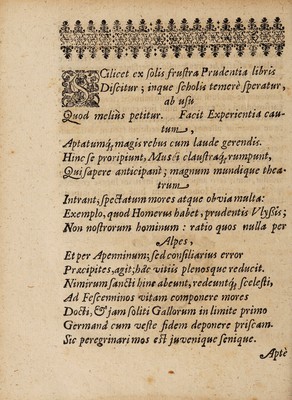 SCilicet ex solis frustra Prudentia libris
Discitur; inque scholis temerè speratur,
ab usu
Quod meliùs petitur. Facit Experientia cau-
tum,
Aptatumq́; magis rebus cum laude gerendis.
Hinc se proripiunt, Musæi claustraq́; rumpunt,
Qui sapere anticipant; magnum mundique thea-
trum
Intrant, spectatum mores atque obvia multa:
Exemplo, quod Homerus habet, prudentis Ulyssis;
Non nostrorum hominum: ratio quos nulla per
Alpes,
Et per Apenninum; sed consiliarius error
Præcipites, agit; hâc vitiis plenosque reducit.
Nimirum sancti hinc abeunt, redeuntq́, scelesti,
Ad Fescenninos vitam componere mores
Docti, & jam soliti Gallorum in limite primo
Germanâ cum veste fidem deponere priscam.
Sic peregrinari mos est juvenique senique.
Aptè